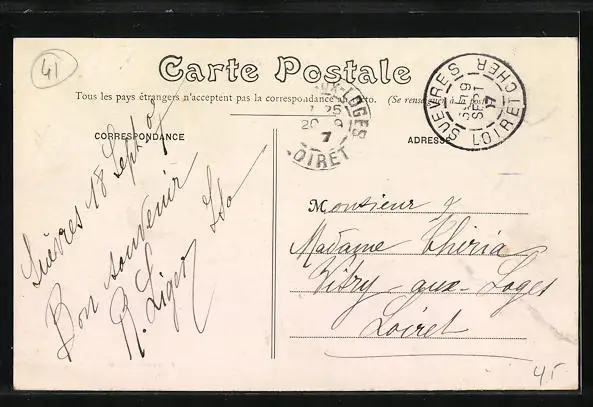 41
Carte Postale
Tous les pays étrangers n'acceptent pas la correspondance au recto. (Se renseigner à la poste)
CORRESPONDANCE
ADRESSE
SUEVRES
LOIR ET CHER
SEPT
LOGES
20 9
7
LOIRET
Suèvres 18 Sept 07
Bon souvenir
R. Liger
Monsieur &
Madame Thiria
Vitry-aux-Loges
Loiret
45